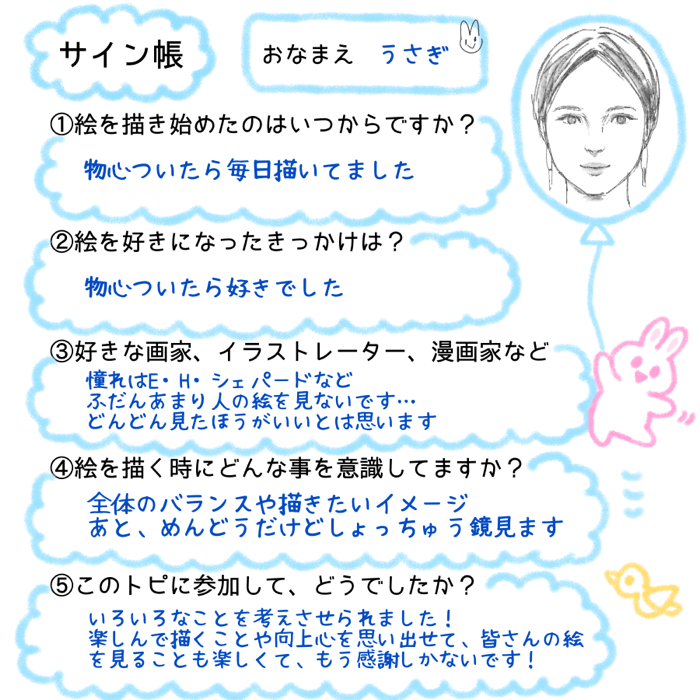 サイン帳
おなまえ うさぎ
①絵を描き始めたのはいつからですか？
物心ついたら毎日描いてました
②絵を好きになったきっかけは？
物心ついたら好きでした
③好きな画家、イラストレーター、漫画家など
憧れはE・H・シェパードなど
ふだんあまり人の絵を見ないです…
どんどん見たほうがいいとは思います
④絵を描く時にどんな事を意識してますか？
全体のバランスや描きたいイメージ
あと、めんどうだけどしょっちゅう鏡見ます
⑤このトピに参加して、どうでしたか？
いろいろなことを考えさせられました！
楽しんで描くことや向上心を思い出せて、皆さんの絵
を見ることも楽しくて、もう感謝しかないです！